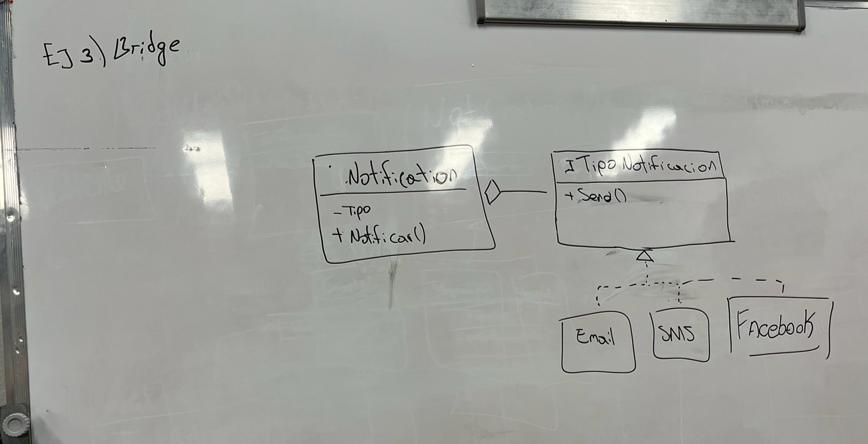 Ej 3) Bridge
Notification
- Tipo
+ Notificar()
ITipoNotificacion
+ Send()
Email
SMS
Facebook